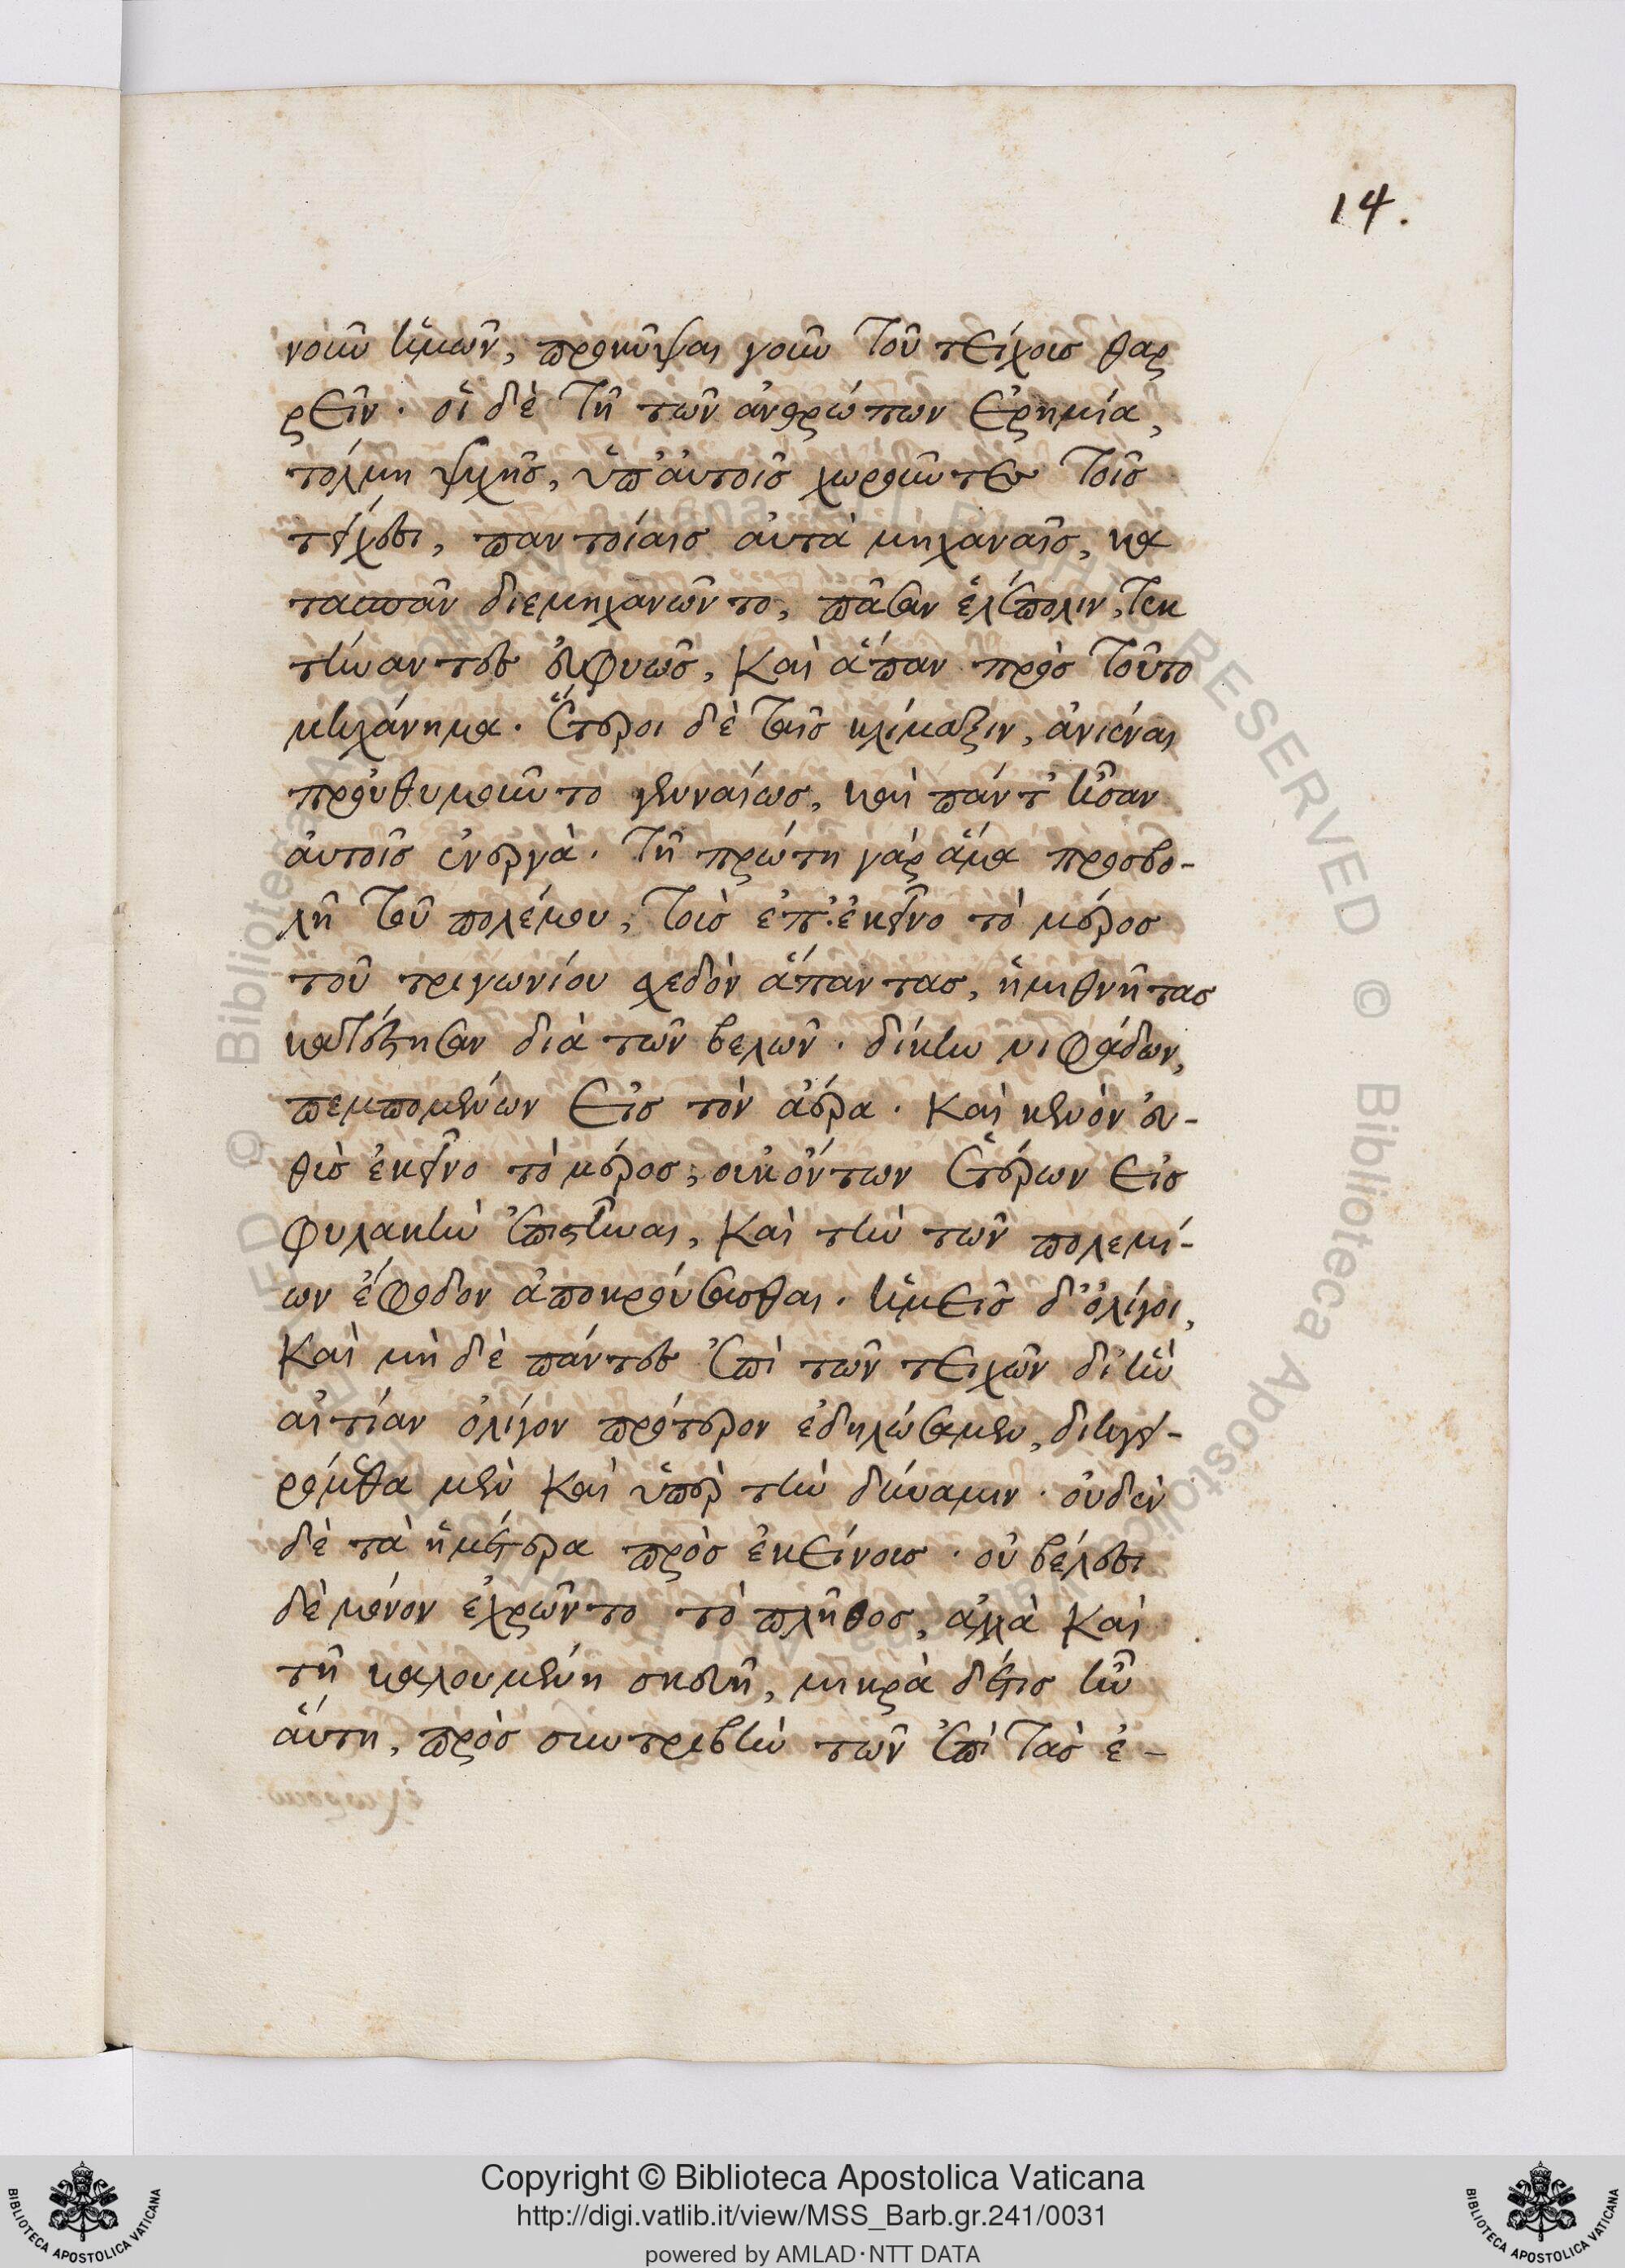 14.
νοῦν ἡμῶν, προκῦψαι γοῦν τοῦ τείχους θαρ
ρεῖν. οἱ δὲ τῆ τῶν ἀνθρώπων ἐρημία,
τόλμη ψυχῆς, ὑπ' αὐτοῖς χωροῦντες τοῖς
τείχεσι, παντοίαις αὐτὰ μηχαναῖς, κα
τασπᾶν διεμηχανῶντο, πᾶσαν ἑλέπολιν, τεκ
τήναντες εὐφυῶς, καὶ ἅπαν πρὸς τοῦτο
μηχάνημα. ἕτεροι δὲ ταῖς κλίμαξιν, ἀνιέναι
προὐθυμοῦντο γενναίως, καὶ πάντ' ἦσαν
αὐτοῖς ἐνεργὰ. τῆ πρώτη γὰρ ἅμα προσβο-
λῆ τοῦ πολέμου, τοὺς ἐπ' ἐκεῖνο τὸ μέρος
τοῦ τριγωνίου σχεδὸν ἅπαντας, ἡμιθνῆτας
κατέστησαν διὰ τῶν βελῶν. δίκην νιφάδων,
πεμπομένων εἰς τὸν ἀέρα. καὶ κενὸν εὐ-
θὺς ἐκεῖνο τὸ μέρος, οὐκ ὄντων ἑτέρων εἰς
φυλακὴν ἐπιστῆναι, καὶ τὴν τῶν πολεμί-
ων ἔφοδον ἀποκρούσασθαι. ἡμεῖς δ' ὀλίγοι,
καὶ μὴ δὲ πάντες ἐπὶ τῶν τειχῶν δι' ἣν
αἰτίαν ὀλίγον πρότερον ἐδηλώσαμεν, διηγει-
ρόμεθα μὲν καὶ ὑπὲρ τὴν δύναμιν. οὐδὲν
δὲ τὰ ἡμέτερα πρὸς ἐκείνους. οὐ βέλεσι
δὲ μόνον ἐχρῶντο τὸ πλῆθος, ἀλλὰ καὶ
τῆ καλουμένη σκευῆ, μικρὰ δέ τις ἦν
αὕτη, πρὸς συντριβὴν τῶν ἐπὶ τὰς ἐ-
Copyright © Biblioteca Apostolica Vaticana
http://digi.vatlib.it/view/MSS_Barb.gr.241/0031
powered by AMLAD·NTT DATA